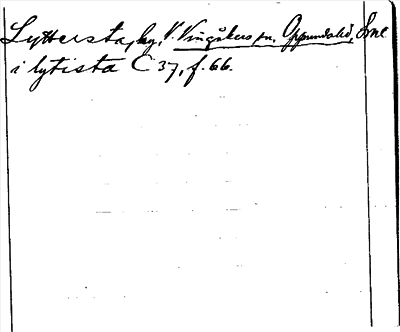 Lyttersta, by, V. Vingåkers sn, Oppunda hd, Sml
i lytista C 37, f. 66.